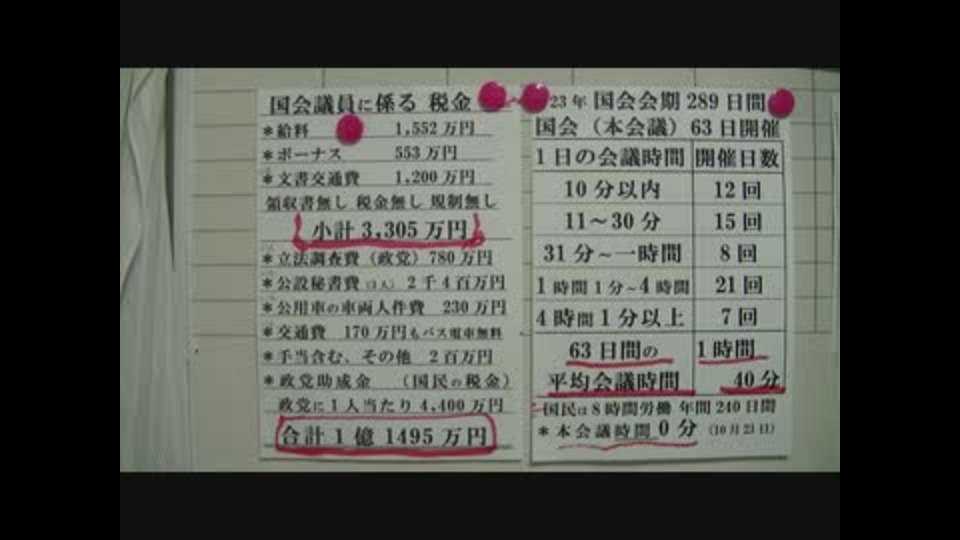 国会議員に係る 税金
*給料 1,552 万円
*ボーナス 553 万円
*文書交通費 1,200 万円
領収書無し 税金無し 規制無し
小計 3,305 万円
*立法調査費(政党)780 万円
*公設秘書費(3人)2千4百万円
*公用車の車両人件費 230 万円
*交通費 170 万円もバス電車無料
*手当含む、その他 2百万円
*政党助成金 (国民の税金)
政党に1人当たり 4,400 万円
合計 1 億 1495 万円
23年 国会会期 289 日間
国会(本会議)63 日開催
1日の会議時間 開催日数
10 分以内 12 回
11～30 分 15 回
31 分~一時間 8 回
1 時間 1 分~4 時間 21 回
4 時間 1 分以上 7 回
63 日間の 1 時間
平均会議時間 40 分
国民は8時間労働 年間 240 日間
*本会議時間 0 分 (10月23日)